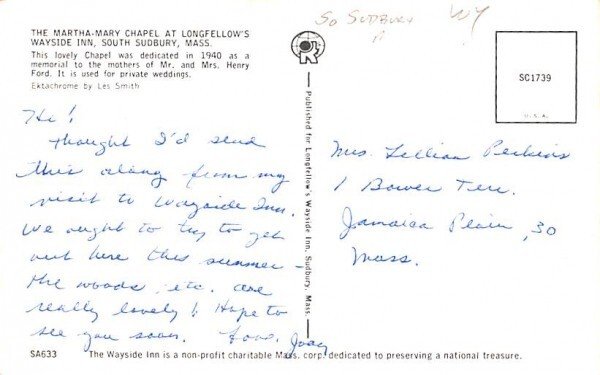 So SUDBURY
THE MARTHA-MARY CHAPEL AT LONGFELLOW'S
WAYSIDE INN, SOUTH SUDBURY, MASS.
This lovely Chapel was dedicated in 1940 as a
memorial to the mothers of Mr. and Mrs. Henry
Ford. It is used for private weddings.
Ektachrome by Les Smith
Hi!
Thought I'd send
this along from my
visit to Wayside Inn.
We ought to try to get
out here this summer -
the woods, etc. are
really lovely! Hope to
see you soon. Love, Joay
SA633
Published for Longfellow's Wayside Inn, Sudbury, Mass.
SC1739
U.S.A.
Mrs. Lillian Perkins
1 Bower Terr.
Jamaica Plain, 30
Mass.
The Wayside Inn is a non-profit charitable Mass. corp. dedicated to preserving a national treasure.